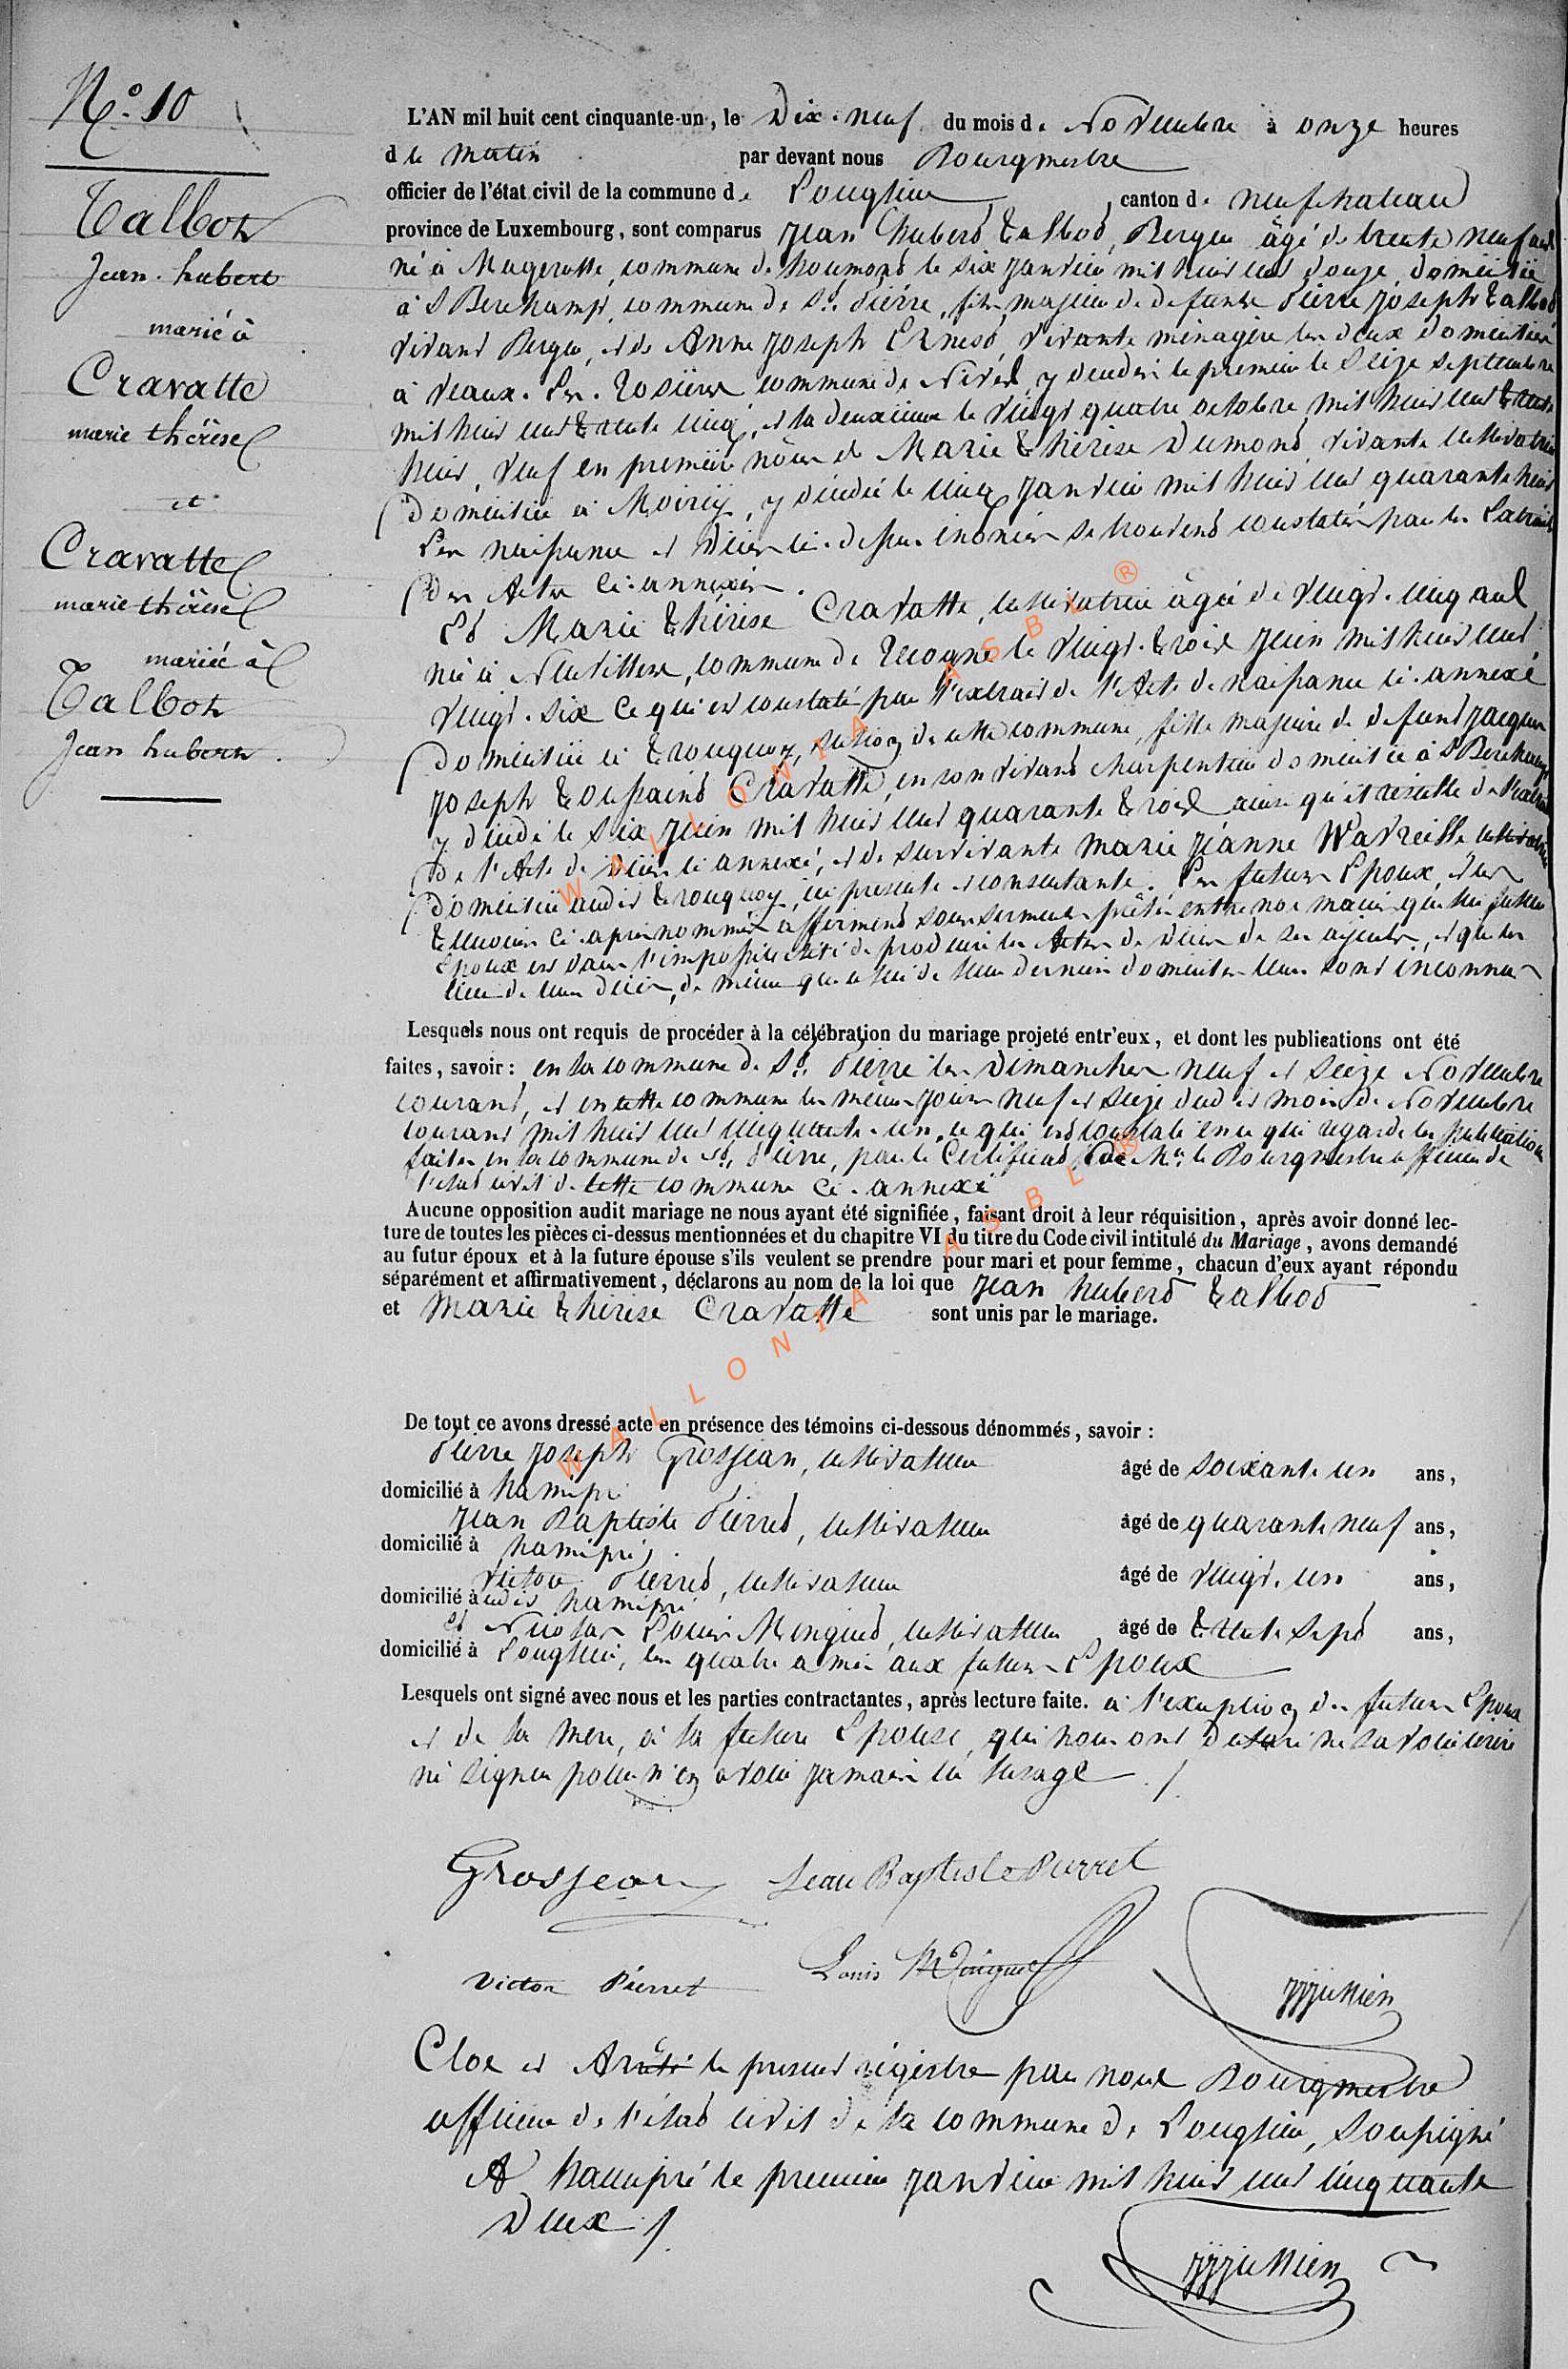 N.° 10
Talbot
Jean-hubert
marié à
Cravatte
marie thérèse
et
Cravatte
marie thérèse
mariée à
Talbot
Jean hubert.
L'AN mil huit cent cinquante-un, le Dix-neuf du mois de Novembre à onze heures
du matin par devant nous Bourgmestre
officier de l'état civil de la commune de Longlier, canton de neufchateau
province de Luxembourg, sont comparus Jean hubert Talbot, Berger âgé de trente neuf ans
né à Magerotte, commune de houmont le six janvier mil huit cent douze, domicilié
à Berchamps, commune de St. Pierre, fils majeur de defunts Pierre joseph Talbot
vivant Berger, et de Anne joseph Ernest, vivante ménagère les deux domiciliés
à Vaux-les-Rosières commune de Nives, y décédés le premier le seize septembre
mil huit cent trente cinq, et la deuxième le vingt quatre octobre mil huit cent trente
huit, veuf en premières nôces de Marie Thérèse Dumont, vivante cultivatrice
domiciliée à Moircy, y décédée le cinq janvier mil huit cent quarante huit
Les naissance et décès ci-dessus énoncés se trouvent constatés par les Extraits
des Actes ci-annexés.
Et Marie Thérèse Cravatte, cultivatrice âgée de vingt-cinq ans,
née à Neuvillers, commune de Recogne le vingt-trois juin mil huit cent
vingt-six ce qui est constaté par l'extrait de l'Acte de naissance ci-annexé
domiciliée à tronquoy, section de cette commune, fille majeure de defunt jacques
joseph toussaint Cravatte, en son vivant charpentier domicilié à Berchamps
y décédé le six juin mil huit cent quarante trois ainsi qu'il résulte de l'extrait
de l'Acte de décès ci annexé, et de survivante marie jeanne Wavreille cultivatrice
domiciliée audit tronquoy, ici présente et consentante. Les futurs Epoux, et les
témoins ci-après nommés affirment sous serment prêté entre nos mains que le futur
époux est dans l'impossibilité de produire les Actes de décès de ses ayeuls, et que les
lieu de leur décès, de même que celui de leur derniers domicile leur sont inconnus
Lesquels nous ont requis de procéder à la célébration du mariage projeté entr'eux, et dont les publications ont été
faites, savoir: en la commune de St. Pierre les Dimanches neuf et seize Novembre
courant, et en cette commune les mêmes jours neuf et seize dudit mois de Novembre
courant mil huit cent cinquante-un, ce qui est constaté en ce qui regarde les publications
faites en la commune de St. Pierre, par le Certificat de Mr. le Bourgmestre officier de
l'état civil de cette commune ci-annexé
Aucune opposition audit mariage ne nous ayant été signifiée, faisant droit à leur réquisition, après avoir donné lec-
ture de toutes les pièces ci-dessus mentionnées et du chapitre VI du titre du Code civil intitulé du Mariage, avons demandé
au futur époux et à la future épouse s'ils veulent se prendre pour mari et pour femme, chacun d'eux ayant répondu
séparément et affirmativement, déclarons au nom de la loi que Jean hubert Talbot
et Marie thérèse Cravatte sont unis par le mariage.
De tout ce avons dressé acte en présence des témoins ci-dessous dénommés, savoir:
Pierre joseph Grosjean, cultivateur âgé de soixante un ans,
domicilié à hamipré
Jean Baptiste Pierret, cultivateur âgé de quarante neuf ans,
domicilié à hamipré,
Victor Pierret, cultivateur âgé de vingt-un ans,
domicilié à audit hamipré
et Nicolas Louis Monguet, cultivateur âgé de trente sept ans,
domicilié à Longlier, les quatre amis aux futurs Epoux
Lesquels ont signé avec nous et les parties contractantes, après lecture faite. à l'exception des futurs Epoux
et de la mère, à la future Epouse, qui nous ont déclaré ne savoir écrire
ni signer pour n'en avoir jamais eu l'usage ./.
Grosjean Jean Baptiste Pierret
Victor Pierret Louis
Clos et Arrêté le présent régistre par nous Bourgmestre
officier de l'état civil de la commune de Longlier, soussigné
A hamipré le premier janvier mil huit cent cinquante
Deux ./.
WALLONIA ASBL ®
WALLONIA ASBL ®